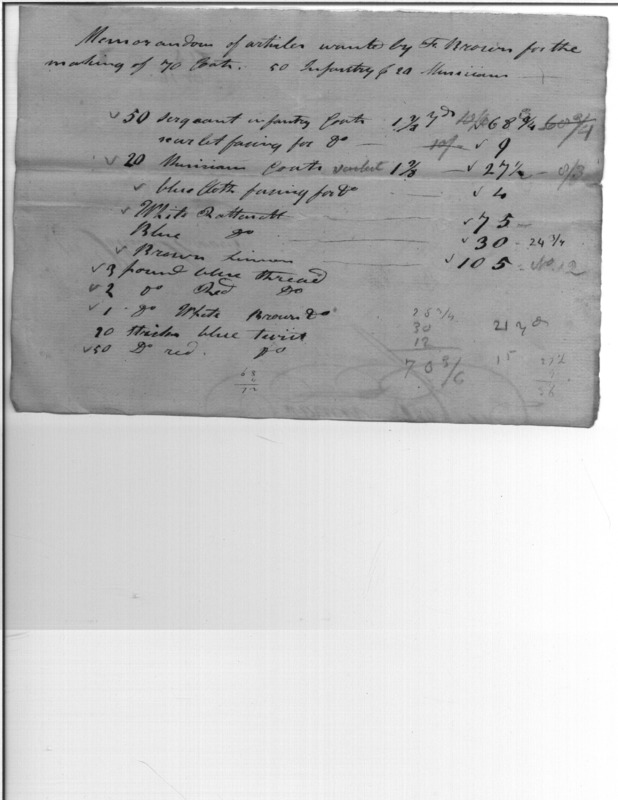 Memorandom of articles wanted by Fs Brown for the
making of 70 Coats. 50 Infantry & 20 Musicians
50 sergeant infantry Coats 1 3/8 yds 68 3/4
scarlet facing for do 9
20 Musicians Coats scarlet 1 3/8 27 1/2
blue Cloth facing for do 4
White Rattinett 75
Blue do 30 - 24 3/4
Brown linnon 105
3 pound blue thread
2 do Red Do
1 do White Brown Do
20 sticks blue twist
50 Do red. do
25 3/4
30 21 yds
12
70 15